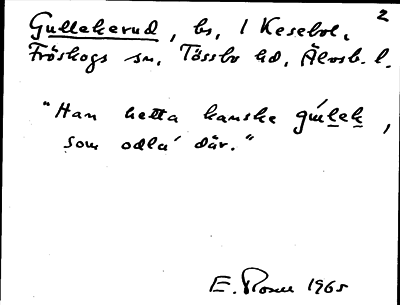 2
Gullekerud, bs, 1 Kesebol,
Fröskogs sn, Tössbo hd, Älvsb. l.
"Han hetta kanske gúlek,
som odla' där."
E. Rosell 1965